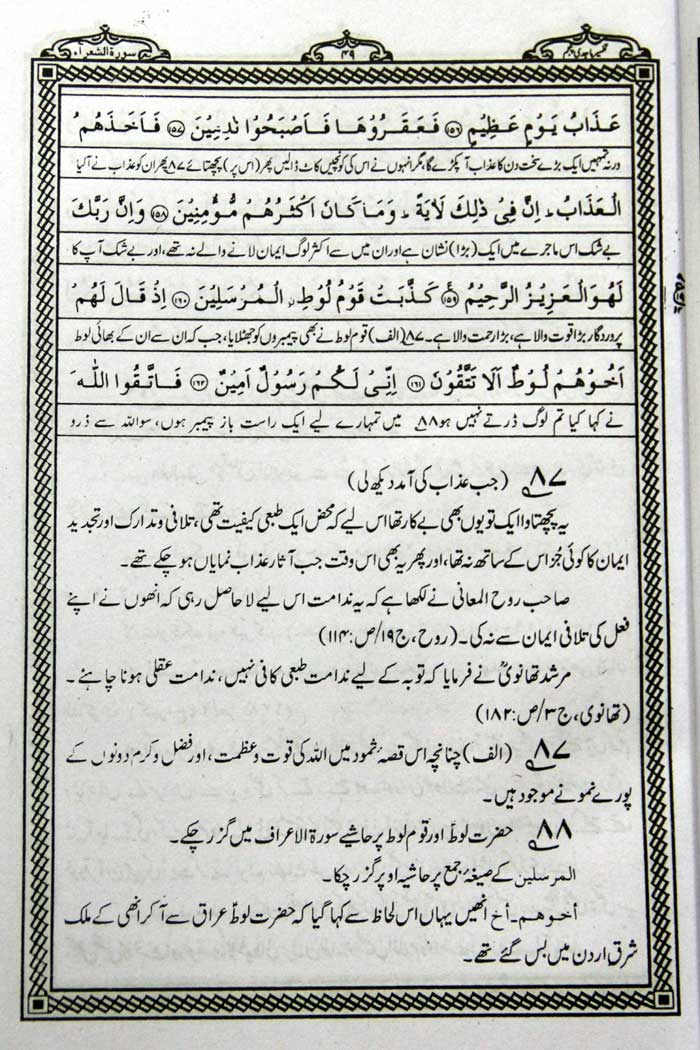 تفسیر ماجدی پنجم ۴۹ سورة الشعرآء
عَذَابُ يَوْمٍ عَظِيْمٍ ﴿۱۵۶﴾ فَعَقَرُوْهَا فَاَصْبَحُوْا نٰدِمِيْنَ ﴿۱۵۷﴾ فَاَخَذَهُمُ
ورنہ تمہیں ایک بڑے سخت دن کا عذاب آ پکڑے گا، مگر انہوں نے اس کی کونچیں کاٹ ڈالیں پھر (اس پر) پچھتائے ۸۷ پھر ان کو عذاب نے آ لیا
الْعَذَابُ ؕ اِنَّ فِىْ ذٰلِكَ لَاٰيَةً ؕ وَمَا كَانَ اَكْثَرُهُمْ مُّؤْمِنِيْنَ ﴿۱۵۸﴾ وَاِنَّ رَبَّكَ
بے شک اس ماجرے میں ایک (بڑا) نشان ہے اور ان میں سے اکثر لوگ ایمان لانے والے نہ تھے، اور بے شک آپ کا
لَهُوَ الْعَزِيْزُ الرَّحِيْمُ ﴿۱۵۹﴾ كَذَّبَتْ قَوْمُ لُوْطِ ۨ الْمُرْسَلِيْنَ ﴿۱۶۰﴾ اِذْ قَالَ لَهُمْ
پروردگار بڑا قوت والا ہے، بڑا رحمت والا ہے۔ ۸۷ (الف) قوم لوط نے بھی پیمبروں کو جھٹلایا، جب کہ ان سے ان کے بھائی لوط
اَخُوْهُمْ لُوْطٌ اَلَا تَتَّقُوْنَ ﴿۱۶۱﴾ اِنِّىْ لَكُمْ رَسُوْلٌ اَمِيْنٌ ﴿۱۶۲﴾ فَاتَّقُوا اللّٰهَ
نے کہا کیا تم لوگ ڈرتے نہیں ہو ۸۸ میں تمہارے لیے ایک راست باز پیمبر ہوں، سو اللہ سے ڈرو
۸۷ (جب عذاب کی آمد دیکھ لی)
یہ پچھتاوا ایک تو یوں بھی بے کار تھا اس لیے کہ محض ایک طبعی کیفیت تھی، تلافی و تدارک اور تجدید
ایمان کا کوئی جُز اس کے ساتھ نہ تھا، اور پھر یہ بھی اس وقت جب آثار عذاب نمایاں ہو چکے تھے۔
صاحب روح المعانی نے لکھا ہے کہ یہ ندامت اس لیے لا حاصل رہی کہ انھوں نے اپنے
فعل کی تلافی ایمان سے نہ کی۔ (روح، ج۱۹/ص:۱۱۴)
مرشد تھانویؒ نے فرمایا کہ توبہ کے لیے ندامت طبعی کافی نہیں، ندامت عقلی ہونا چاہئے۔
(تھانوی، ج۳/ص:۱۸۲)
۸۷ (الف) چنانچہ اس قصۂ ثمود میں اللہ کی قوت و عظمت، اور فضل و کرم دونوں کے
پورے نمونے موجود ہیں۔
۸۸ حضرت لوطؑ اور قوم لوط پر حاشیے سورۃ الاعراف میں گزر چکے۔
المرسلین کے صیغۂ جمع پر حاشیہ اوپر گزر چکا۔
أخوهم۔أخ انھیں یہاں اس لحاظ سے کہا گیا کہ حضرت لوطؑ عراق سے آ کر انھی کے ملک
شرق اردن میں بس گئے تھے۔